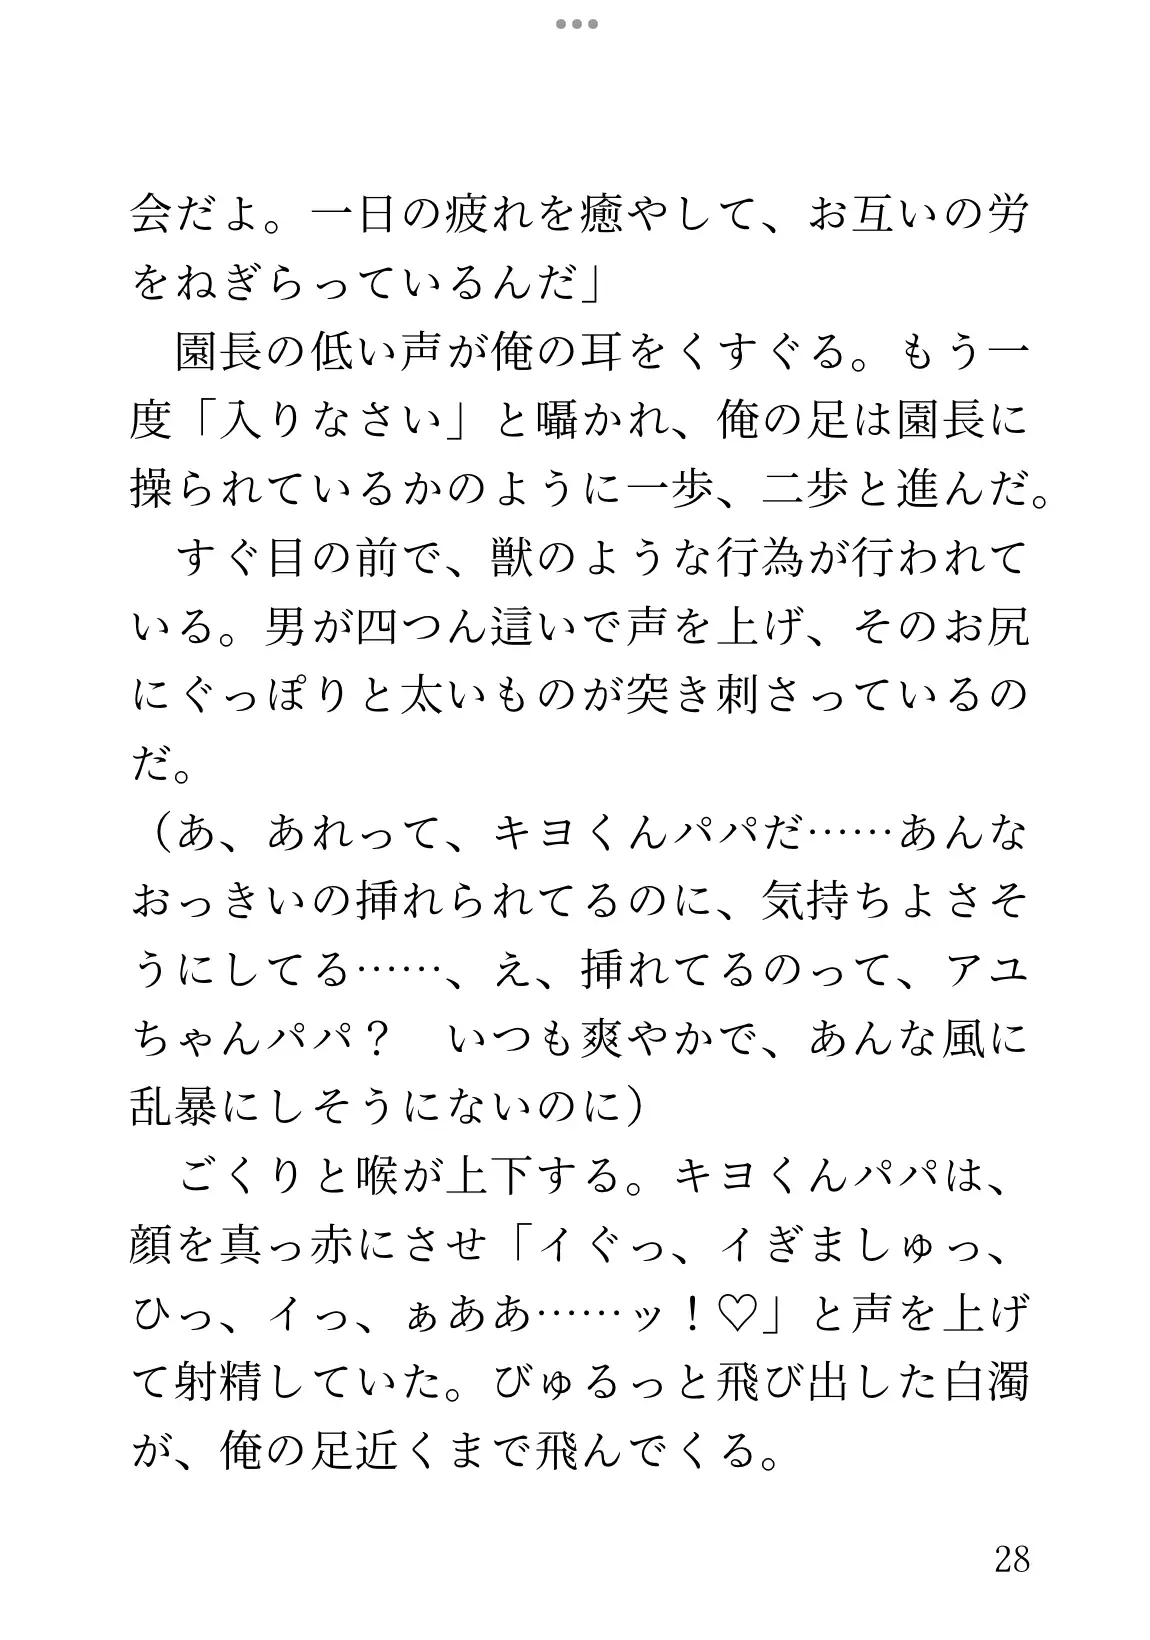 会だよ。一日の疲れを癒やして、お互いの労
をねぎらっているんだ」
　園長の低い声が俺の耳をくすぐる。もう一
度「入りなさい」と囁かれ、俺の足は園長に
操られているかのように一歩、二歩と進んだ。
　すぐ目の前で、獣のような行為が行われて
いる。男が四つん這いで声を上げ、そのお尻
にぐっぽりと太いものが突き刺さっているの
だ。
（あ、あれって、キヨくんパパだ……あんな
おっきいの挿れられてるのに、気持ちよさそ
うにしてる……、え、挿れてるのって、アユ
ちゃんパパ？　いつも爽やかで、あんな風に
乱暴にしそうにないのに）
　ごくりと喉が上下する。キヨくんパパは、
顔を真っ赤にさせ「イぐっ、イぎましゅっ、
ひっ、イっ、ぁああ……ッ！♡」と声を上げ
て射精していた。びゅるっと飛び出した白濁
が、俺の足近くまで飛んでくる。
28